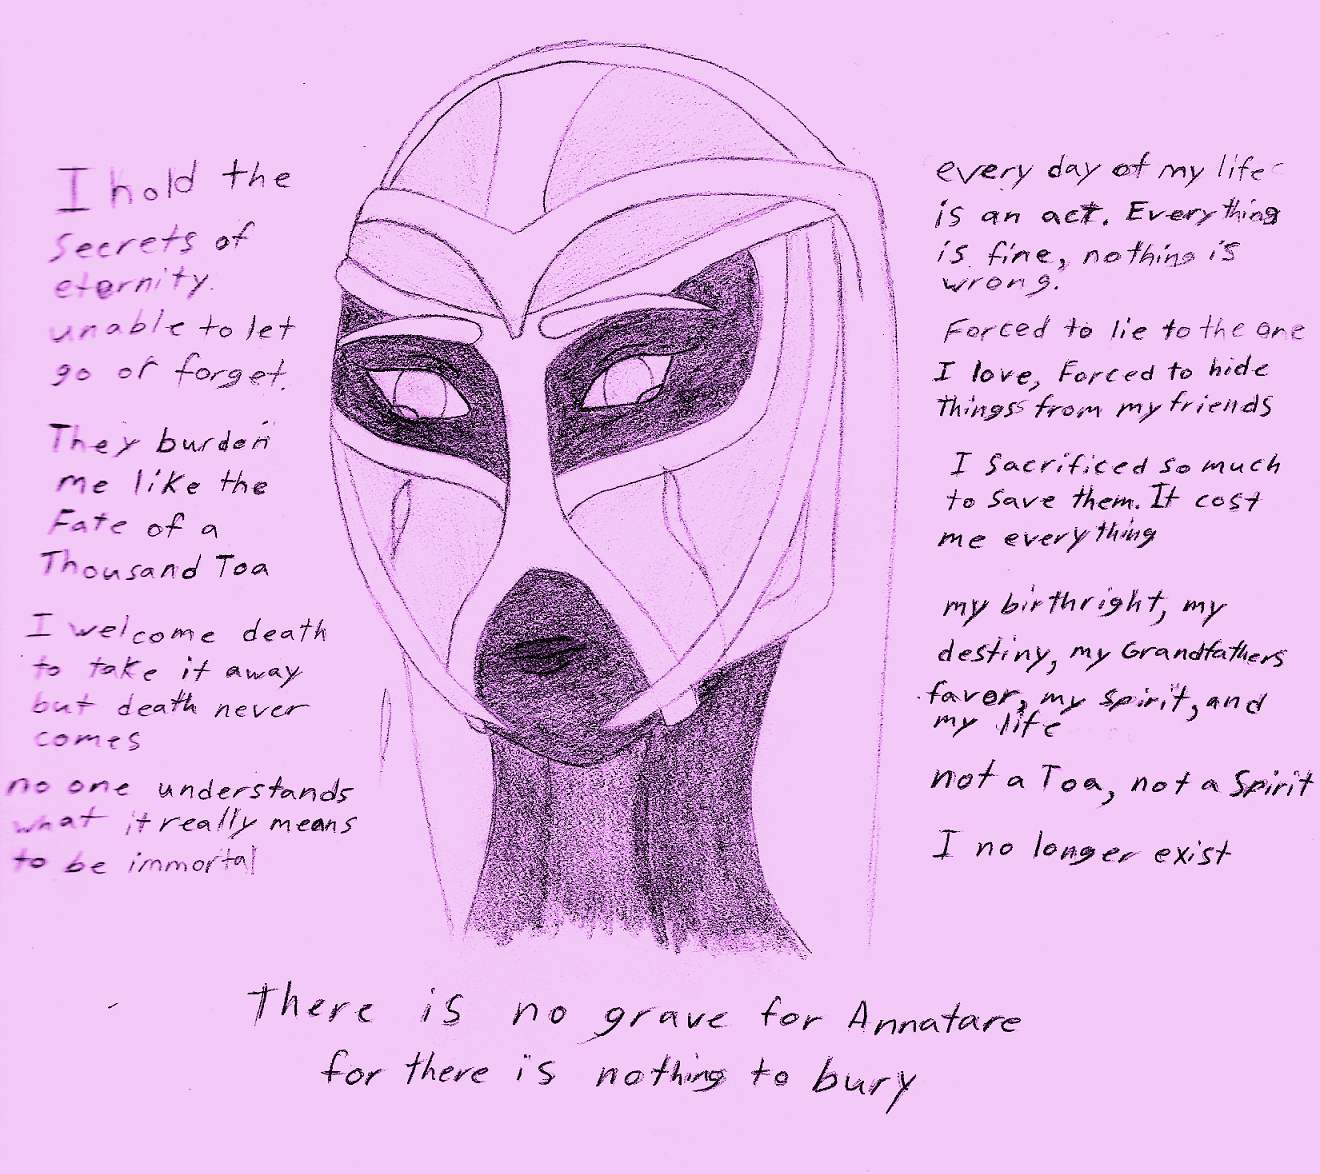 I hold the
secrets of
eternity.
unable to let
go or forget.
They burden
me like the
Fate of a
Thousand Toa
I welcome death
to take it away
but death never
comes
no one understands
what it really means
to be immortal
every day of my life
is an act. Everything
is fine, nothing is
wrong.
Forced to lie to the one
I love, Forced to hide
things from my friends
I sacrificed so much
to save them. It cost
me everything
my birthright, my
destiny, my Grandfathers
favor, my spirit, and
my life
not a Toa, not a Spirit
I no longer exist
There is no grave for Annatare
for there is nothing to bury